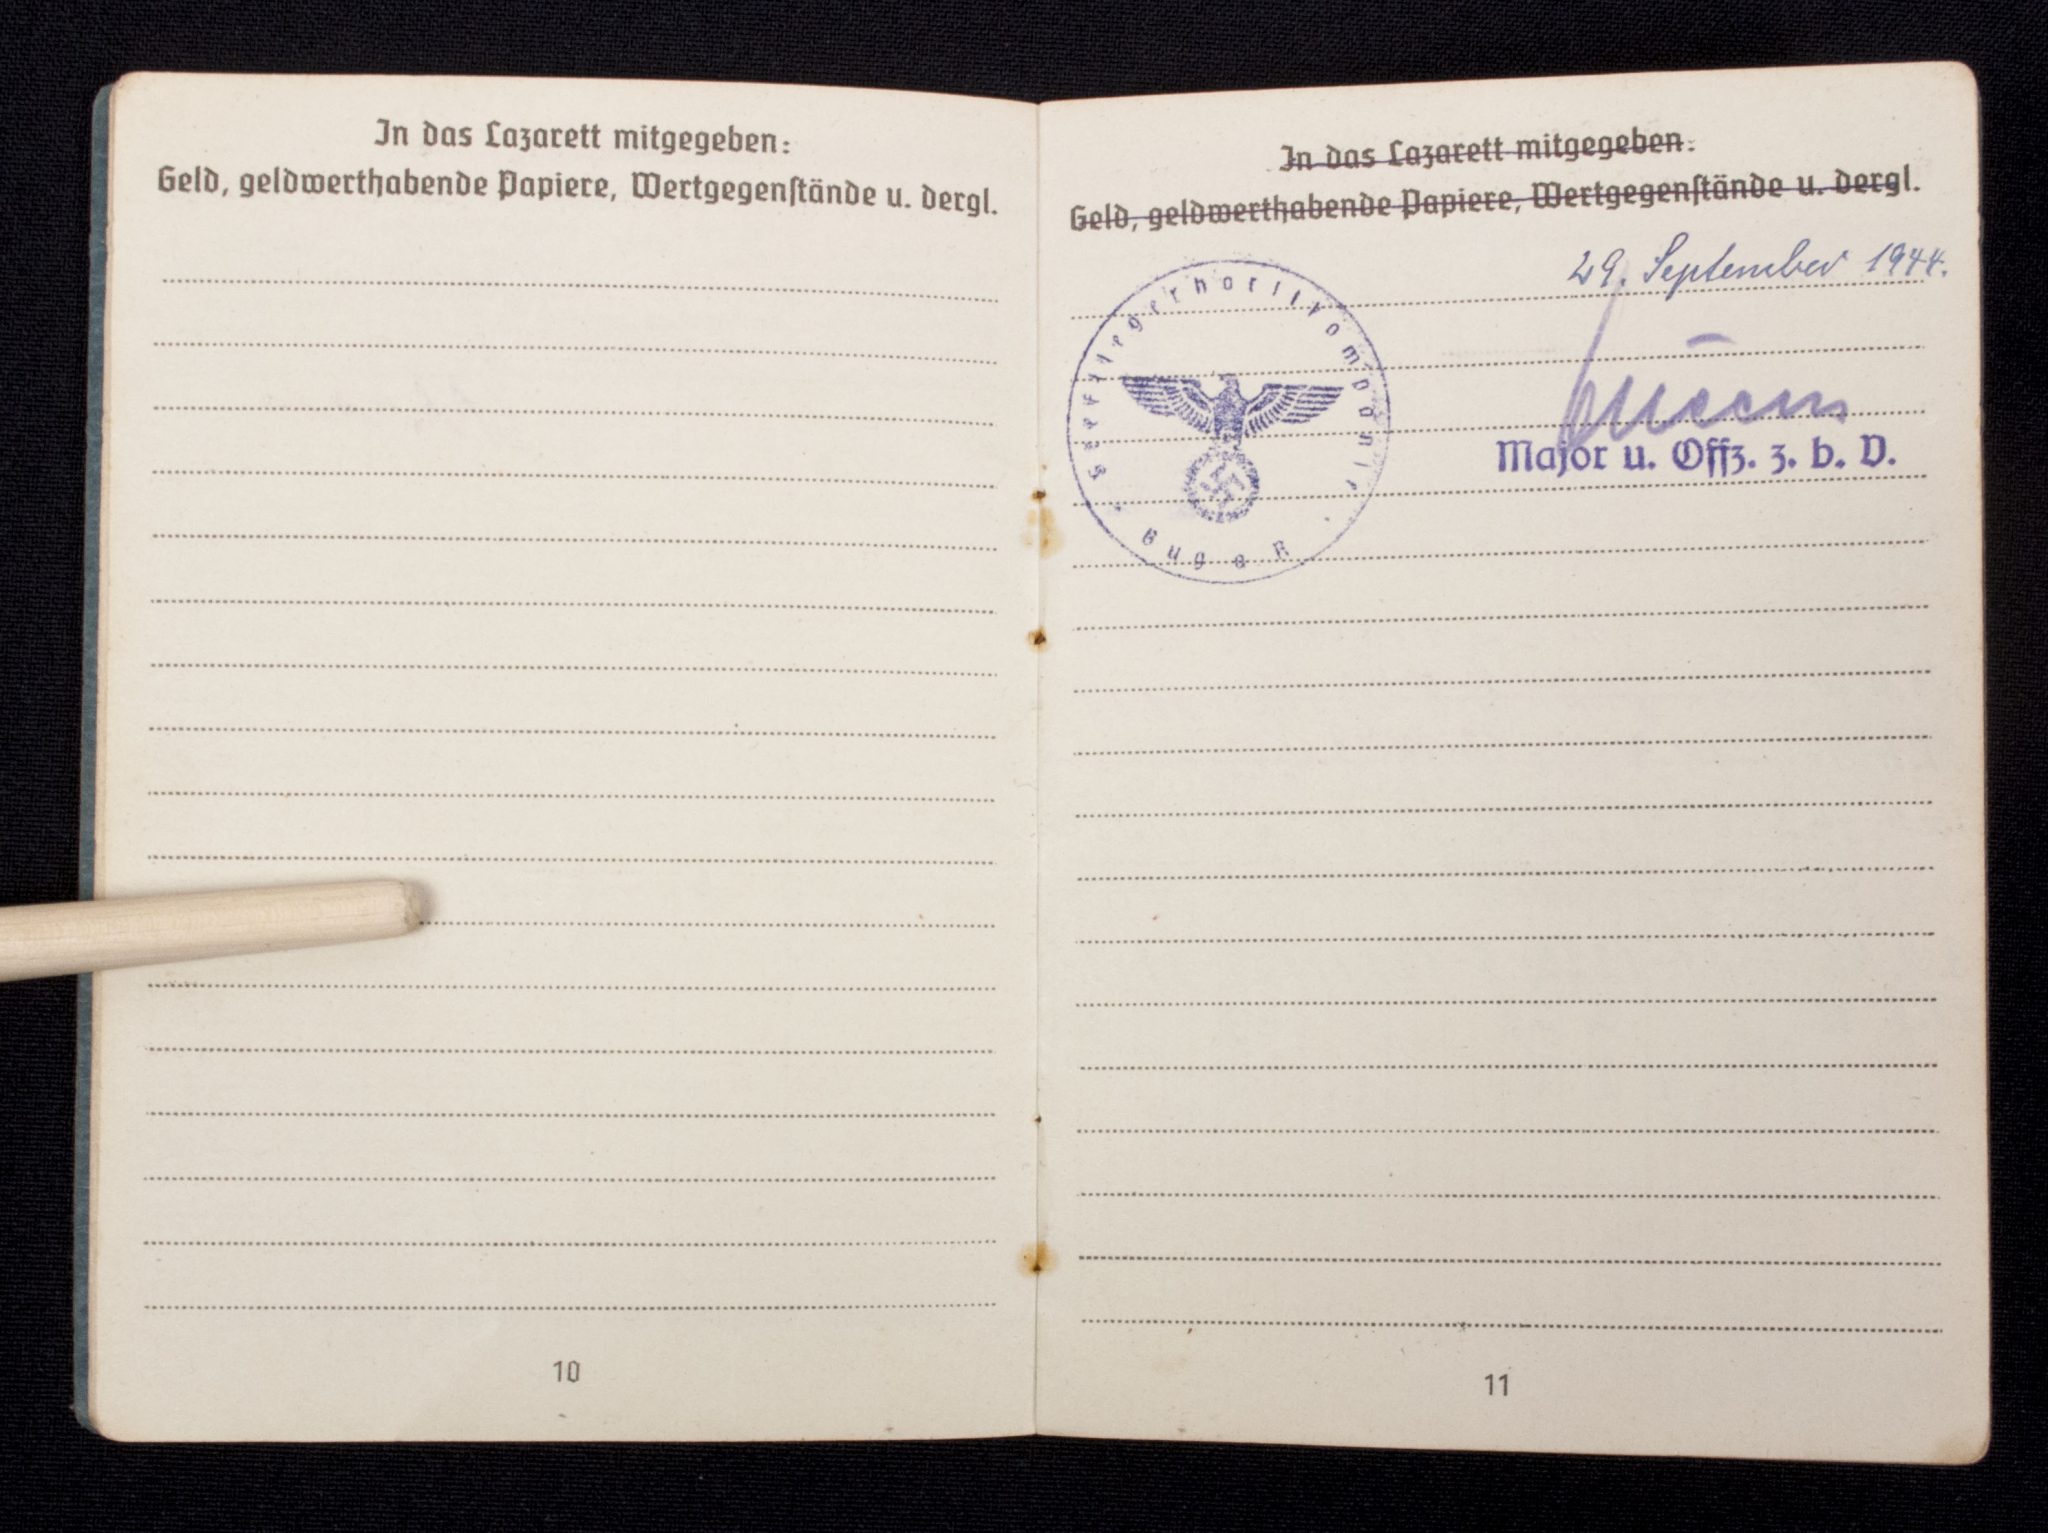 In das Lazarett mitgegeben:
Geld, geldwerthabende Papiere, Wertgegenſtände u. dergl.
10
In das Lazarett mitgegeben:
Geld, geldwerthabende Papiere, Wertgegenſtände u. dergl.
29. September 1944.
Seefliegerhorſtkompanie
Bug a R
Major u. Offz. z. b. V.
11